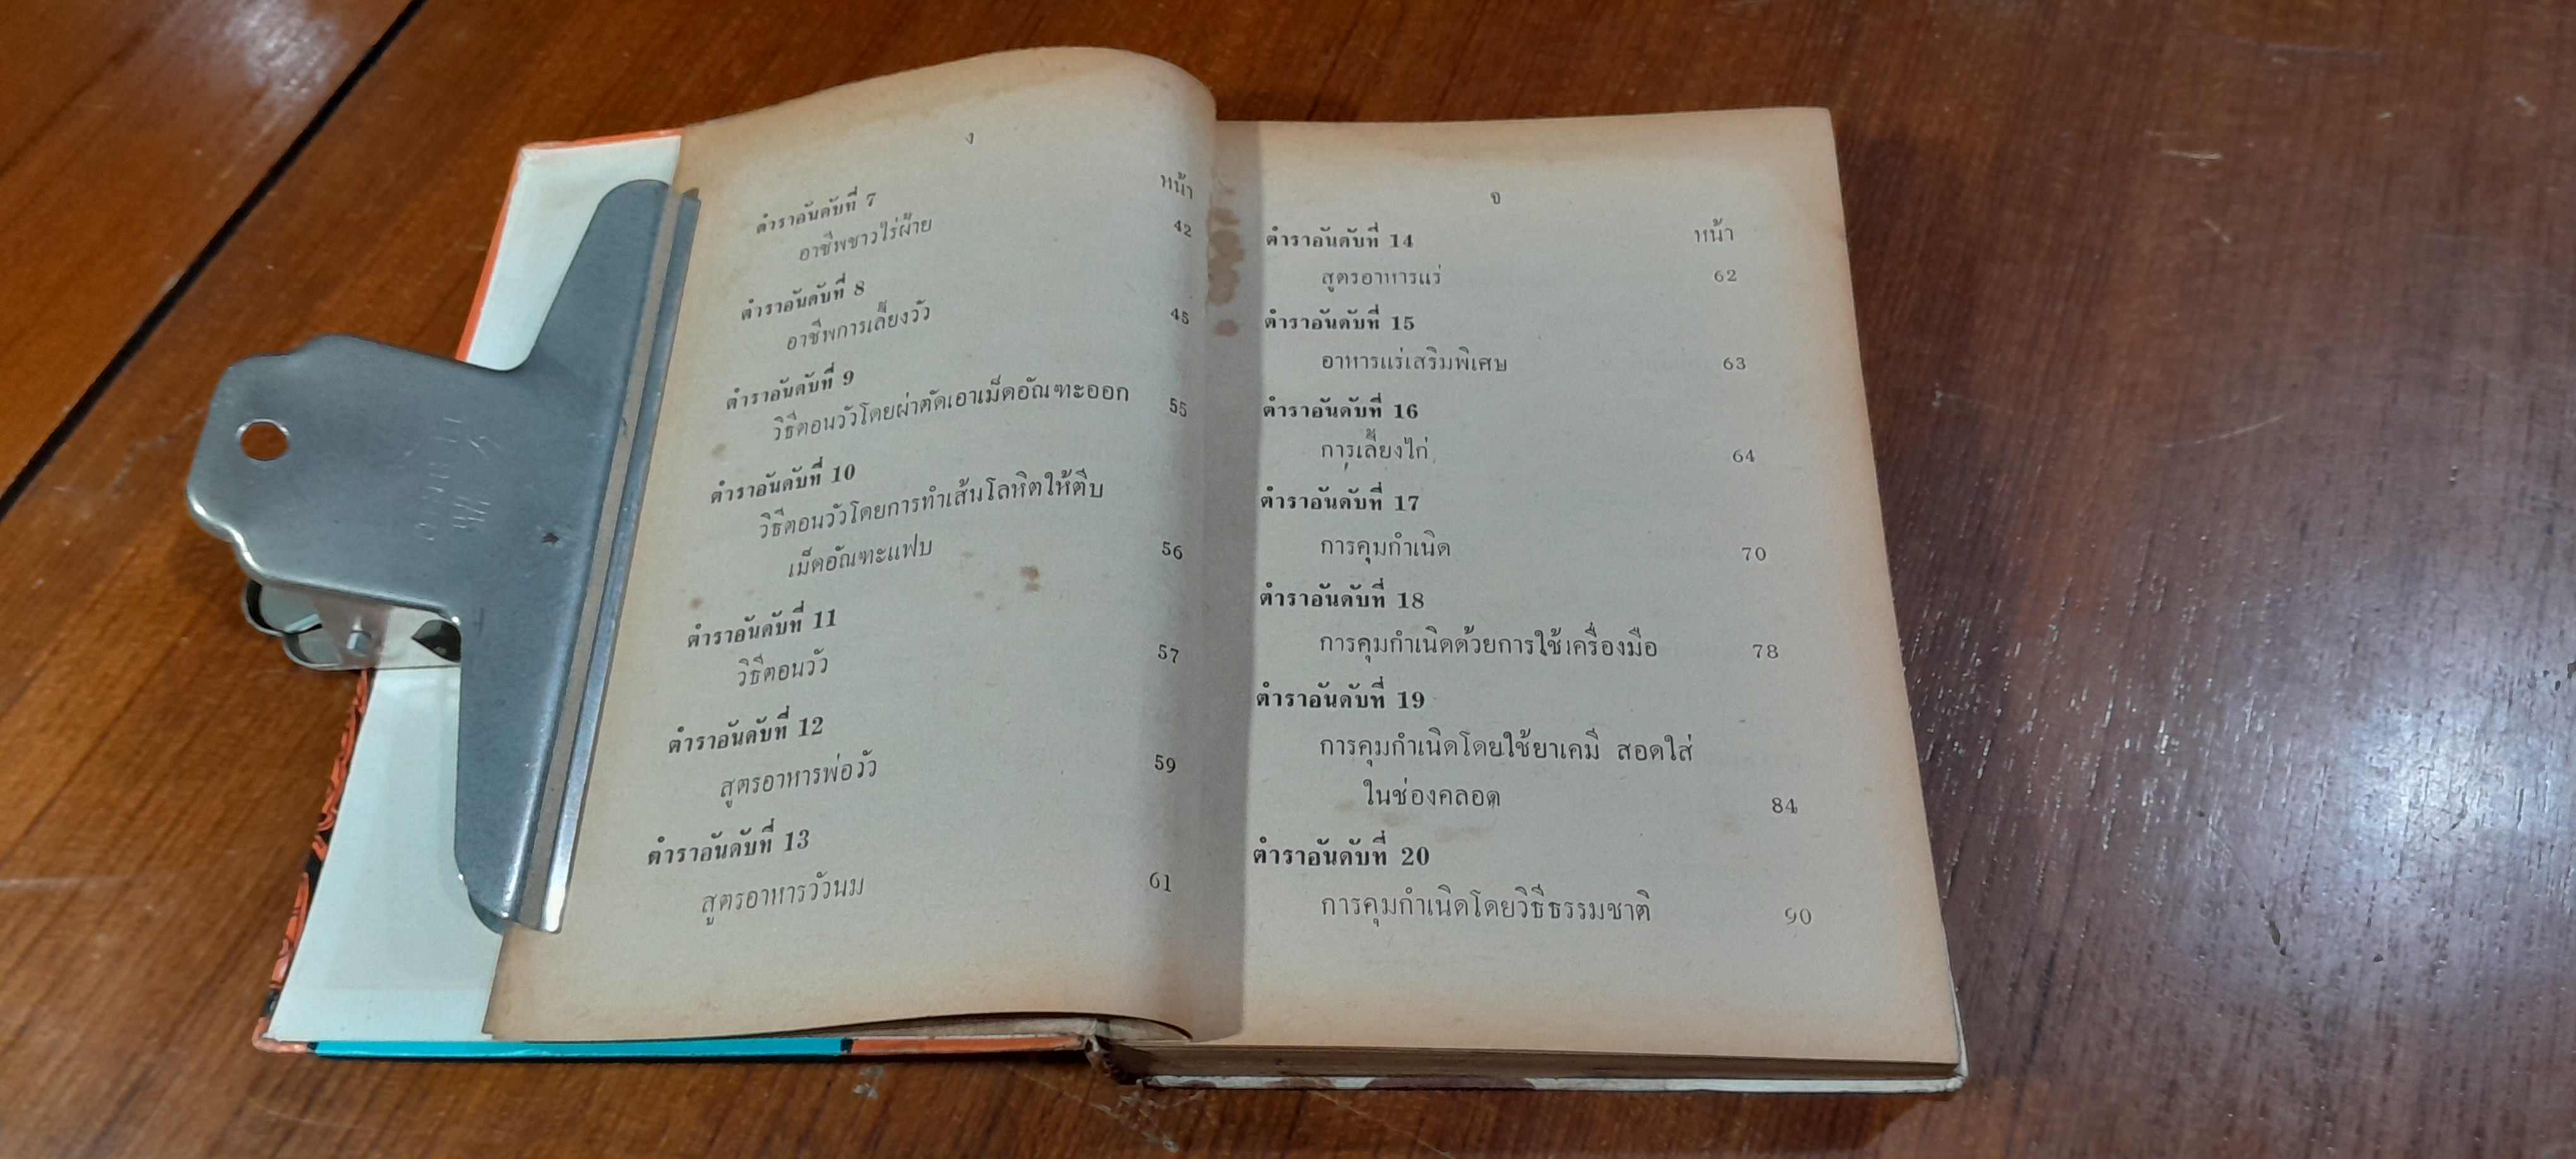 ง
หน้า
ตำราอันดับที่ 7
อาชีพชาวไร่ฝ้าย 42
ตำราอันดับที่ 8
อาชีพการเลี้ยงวัว 45
ตำราอันดับที่ 9
วิธีตอนวัวโดยผ่าตัดเอาเม็ดอัณฑะออก 55
ตำราอันดับที่ 10
วิธีตอนวัวโดยการทำเส้นโลหิตให้ตีบ
เม็ดอัณฑะแฟบ 56
ตำราอันดับที่ 11
วิธีตอนวัว 57
ตำราอันดับที่ 12
สูตรอาหารพ่อวัว 59
ตำราอันดับที่ 13
สูตรอาหารวัวนม 61
จ
ตำราอันดับที่ 14 หน้า
สูตรอาหารแร่ 62
ตำราอันดับที่ 15
อาหารแร่เสริมพิเศษ 63
ตำราอันดับที่ 16
การเลี้ยงไก่ 64
ตำราอันดับที่ 17
การคุมกำเนิด 70
ตำราอันดับที่ 18
การคุมกำเนิดด้วยการใช้เครื่องมือ 78
ตำราอันดับที่ 19
การคุมกำเนิดโดยใช้ยาเคมี สอดใส่
ในช่องคลอด 84
ตำราอันดับที่ 20
การคุมกำเนิดโดยวิธีธรรมชาติ 90